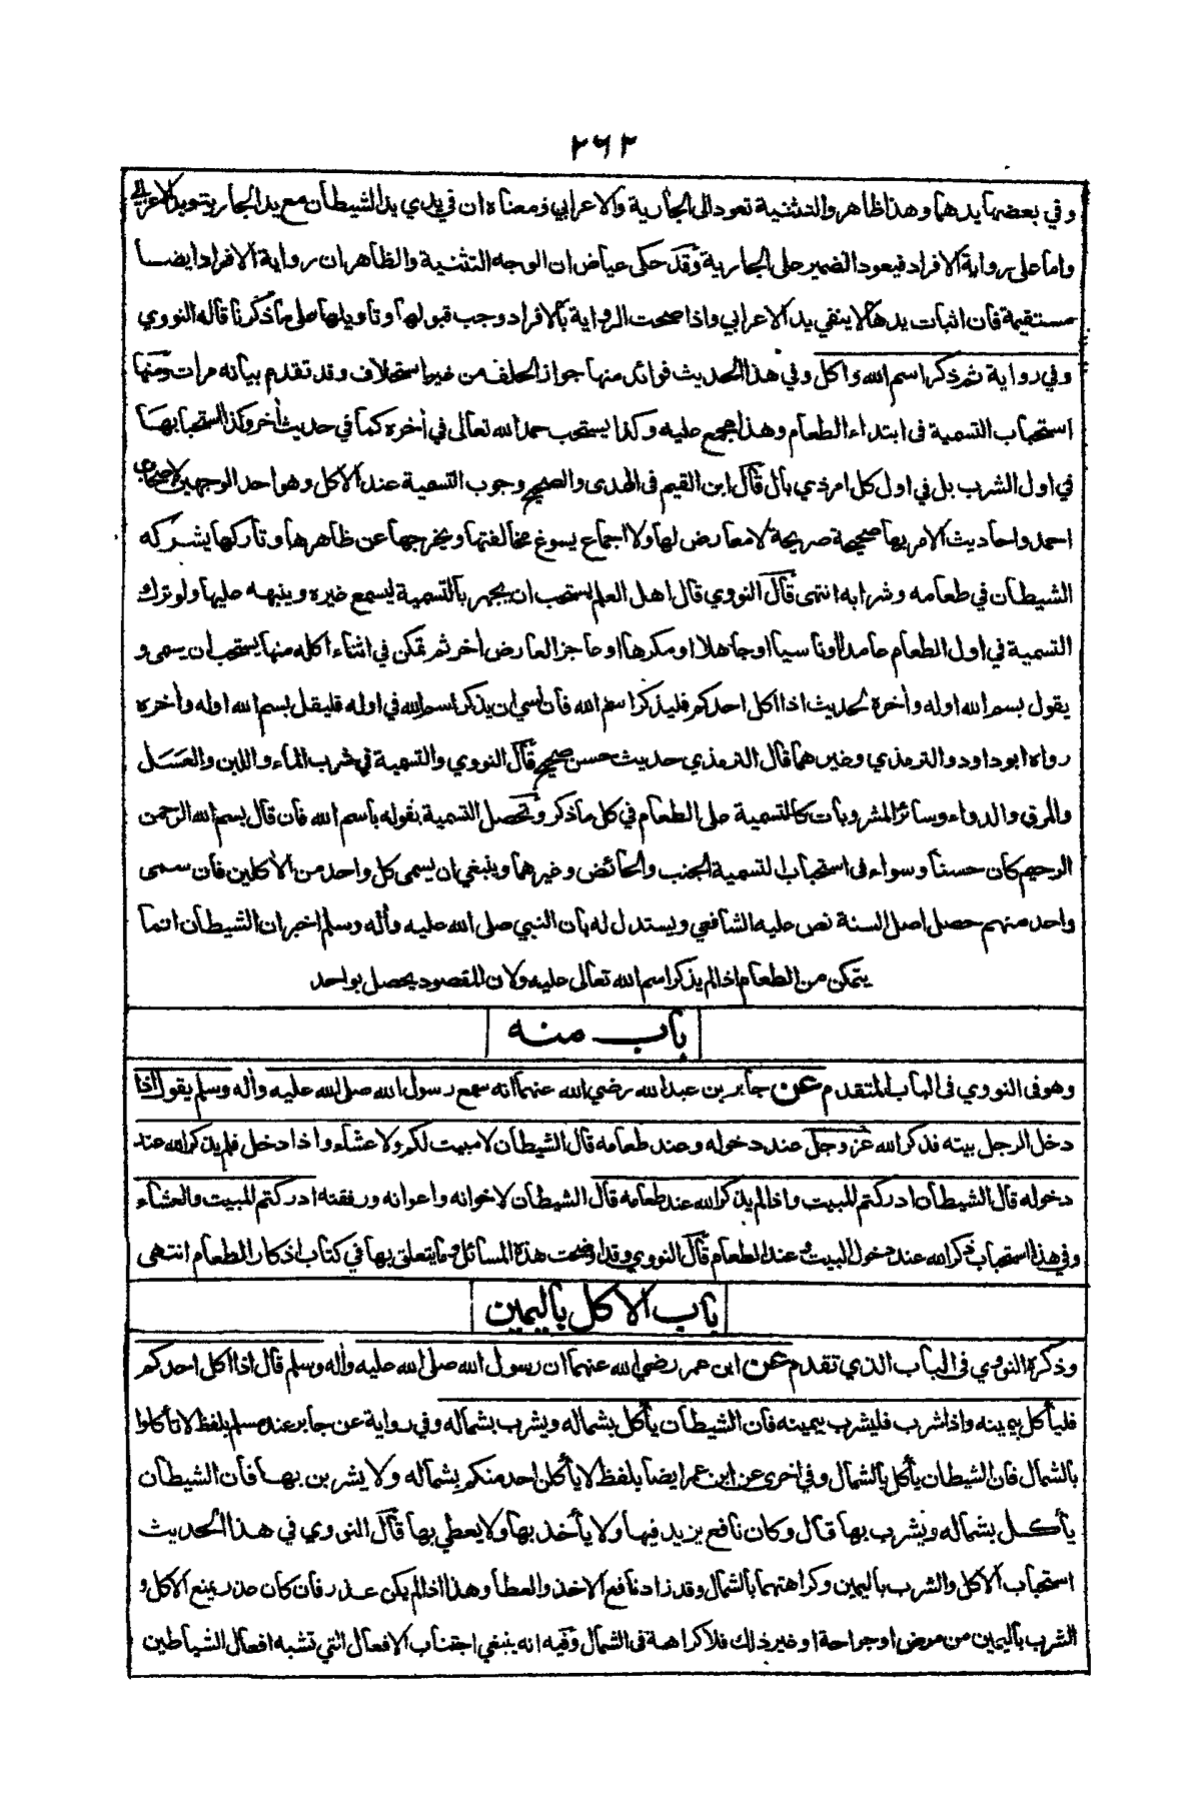 ٢٦٢
وفي بعضها يدهما وهذا ظاهر والتثنية تعود الى الجارية والاعرابي ومعناه ان في يدي يد الشيطان مع يد الجارية ويد الاعرابي
واما على رواية الافراد فيعود الضمير على الجارية وقد حكى عياض ان الوجه التثنية والظاهر ان رواية الافراد ايضا
مستقيمة فان اثبات يدها لا ينفي يد الاعرابي واذا صحت الرواية بالافراد وجب قبولها وتأويلها على ما ذكرنا قاله النووي
وفي رواية ثم ذكر اسم الله واكل وفي هذا الحديث فوائد منها جواز الحلف من غير استحلاف وقد تقدم بيانه مرات ومنها
استحباب التسمية في ابتداء الطعام وهذا مجمع عليه وكذا يستحب حمد الله تعالى في أخره كما في حديث أخر وكذا استحبابها
في اول الشرب بل في اول كل امر ذي بال قال ابن القيم في الهدى والصحيح وجوب التسمية عند الاكل وهو احد الوجهين لاصحاب
احمد واحاديث الامر بها صحيحة صريحة لا معارض لها ولا اجماع يسوغ مخالفتها ويخرجها عن ظاهرها وتاركها يشركه
الشيطان في طعامه وشرابه انتهى قال النووي قال اهل العلم يستحب ان يجهر بالتسمية ليسمع غيره وينبهه عليها ولو ترك
التسمية في اول الطعام عامدا او ناسيا او جاهلا او مكرها او عاجزا لعارض أخر ثم تمكن في اثناء اكله منها يستحب ان يسمى و
يقول بسم الله اوله وأخره لحديث اذا اكل احدكم فليذكر اسم الله فان نسي ان يذكر اسم الله في اوله فليقل بسم الله اوله وأخره
رواه ابو داود والترمذي وغيرهما قال الترمذي حديث حسن صحيح قال النووي والتسمية في شرب الماء واللبن والعسل
والمرق والدواء وسائر المشروبات كالتسمية على الطعام في كل ما ذكر وتحصل التسمية بقوله باسم الله فان قال بسم الله الرحمن
الرحيم كان حسنا وسواء في استحباب التسمية الجنب والحائض وغيرهما وينبغي ان يسمى كل واحد من الأكلين فان سمى
واحد منهم حصل اصل السنة نص عليه الشافعي ويستدل له بان النبي صلى الله عليه وأله وسلم اخبر ان الشيطان انما
يتمكن من الطعام اذا لم يذكر اسم الله تعالى عليه ولان المقصود يحصل بواحد
باب منه
وهو في النووي في الباب المتقدم عن جابر بن عبد الله رضي الله عنهما انه سمع رسول الله صلى الله عليه وأله وسلم يقول اذا
دخل الرجل بيته فذكر الله عز وجل عند دخوله وعند طعامه قال الشيطان لا مبيت لكم ولا عشاء واذا دخل فلم يذكر الله عند
دخوله قال الشيطان ادركتم المبيت واذا لم يذكر الله عند طعامه قال الشيطان لاخوانه واعوانه ورفقته ادركتم المبيت والعشاء
وفي هذا استحباب ذكر الله عند دخول البيت وعند الطعام قال النووي وقد اوضحت هذه المسائل وما يتعلق بها في كتاب اذكار الطعام انتهى
باب الاكل باليمين
وذكره النووي في الباب الذي تقدم عن ابن عمر رضي الله عنهما ان رسول الله صلى الله عليه وأله وسلم قال اذا اكل احدكم
فليأكل بيمينه واذا شرب فليشرب بيمينه فان الشيطان يأكل بشماله ويشرب بشماله وفي رواية عن جابر عند مسلم بلفظ لا تأكلوا
بالشمال فان الشيطان يأكل بالشمال وفي اخرى عن ابن عمر ايضا بلفظ لا يأكلن احد منكم بشماله ولا يشربن بها فان الشيطان
يأكل بشماله ويشرب بها قال وكان نافع يزيد فيها ولا يأخذ بها ولا يعطي بها قال النووي في هذا الحديث
استحباب الاكل والشرب باليمين وكراهتهما بالشمال وقد زاد نافع الاخذ والعطا وهذا اذا لم يكن عذر فان كان عذر يمنع الاكل و
الشرب باليمين من مرض او جراحة او غير ذلك فلا كراهة في الشمال وفيه انه ينبغي اجتناب الافعال التي تشبه افعال الشياطين